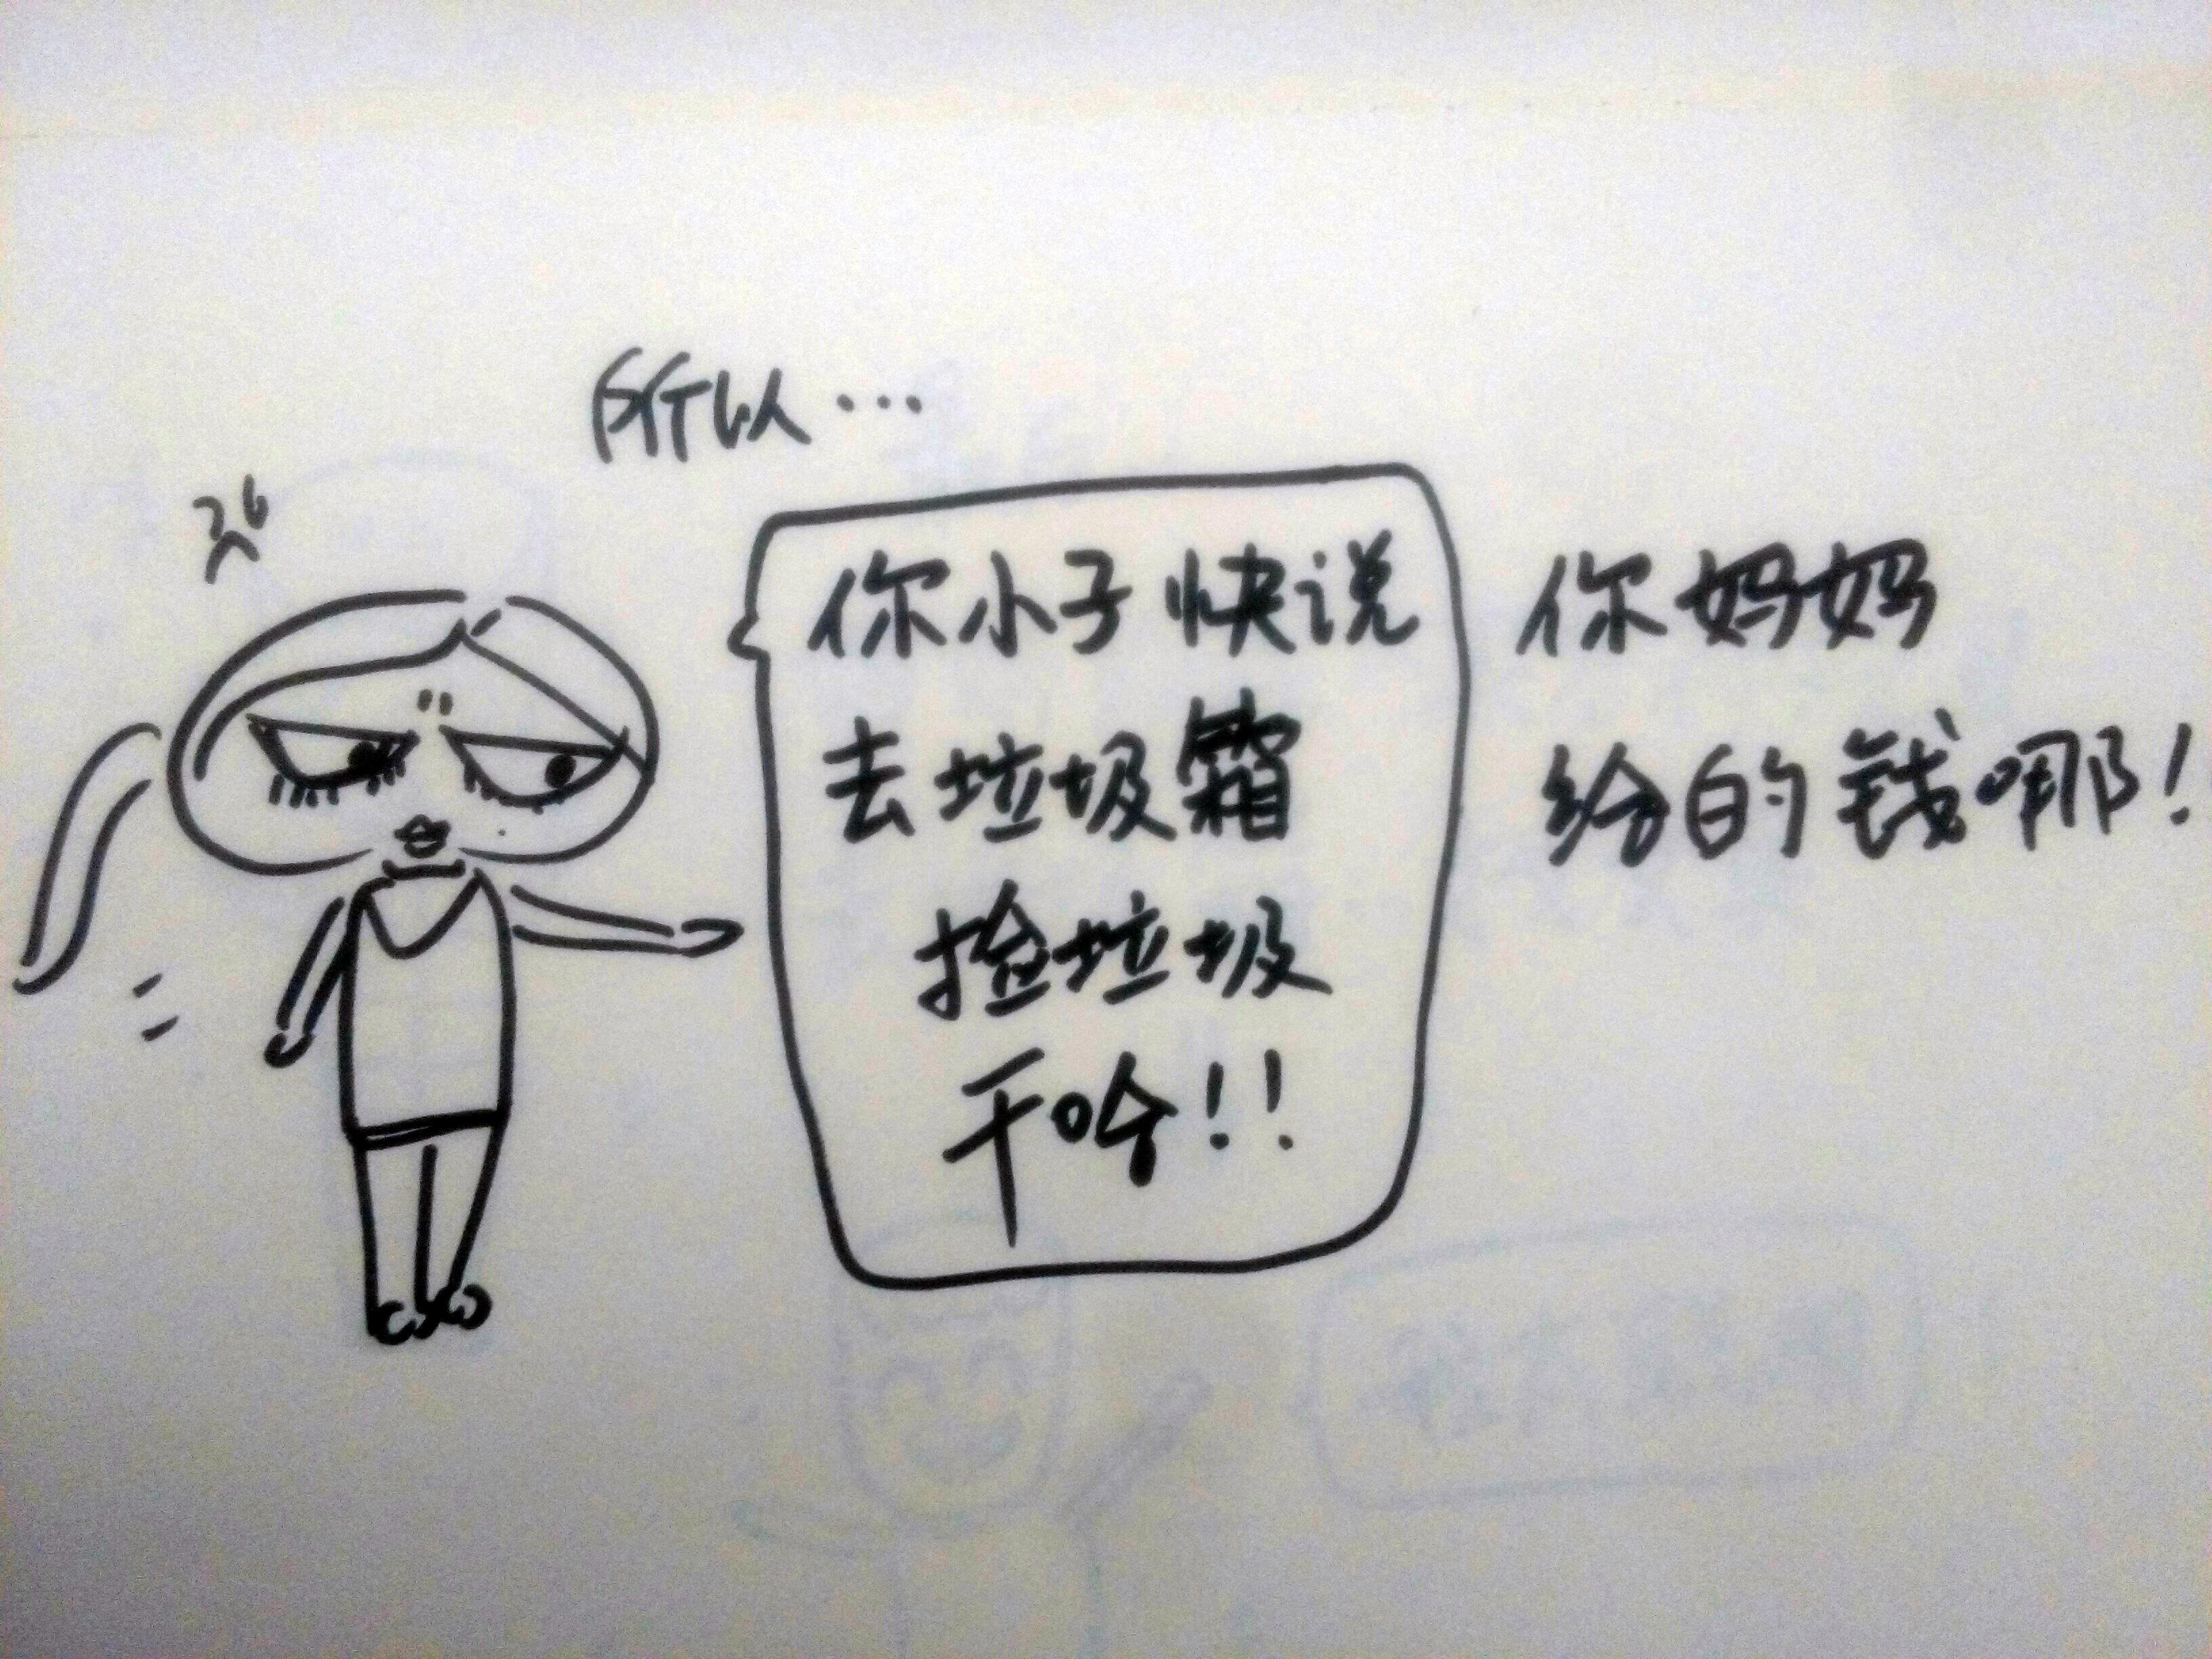 所以…
你小子快说
去垃圾箱
捡垃圾
干啥!!
你妈妈
给的钱哪!